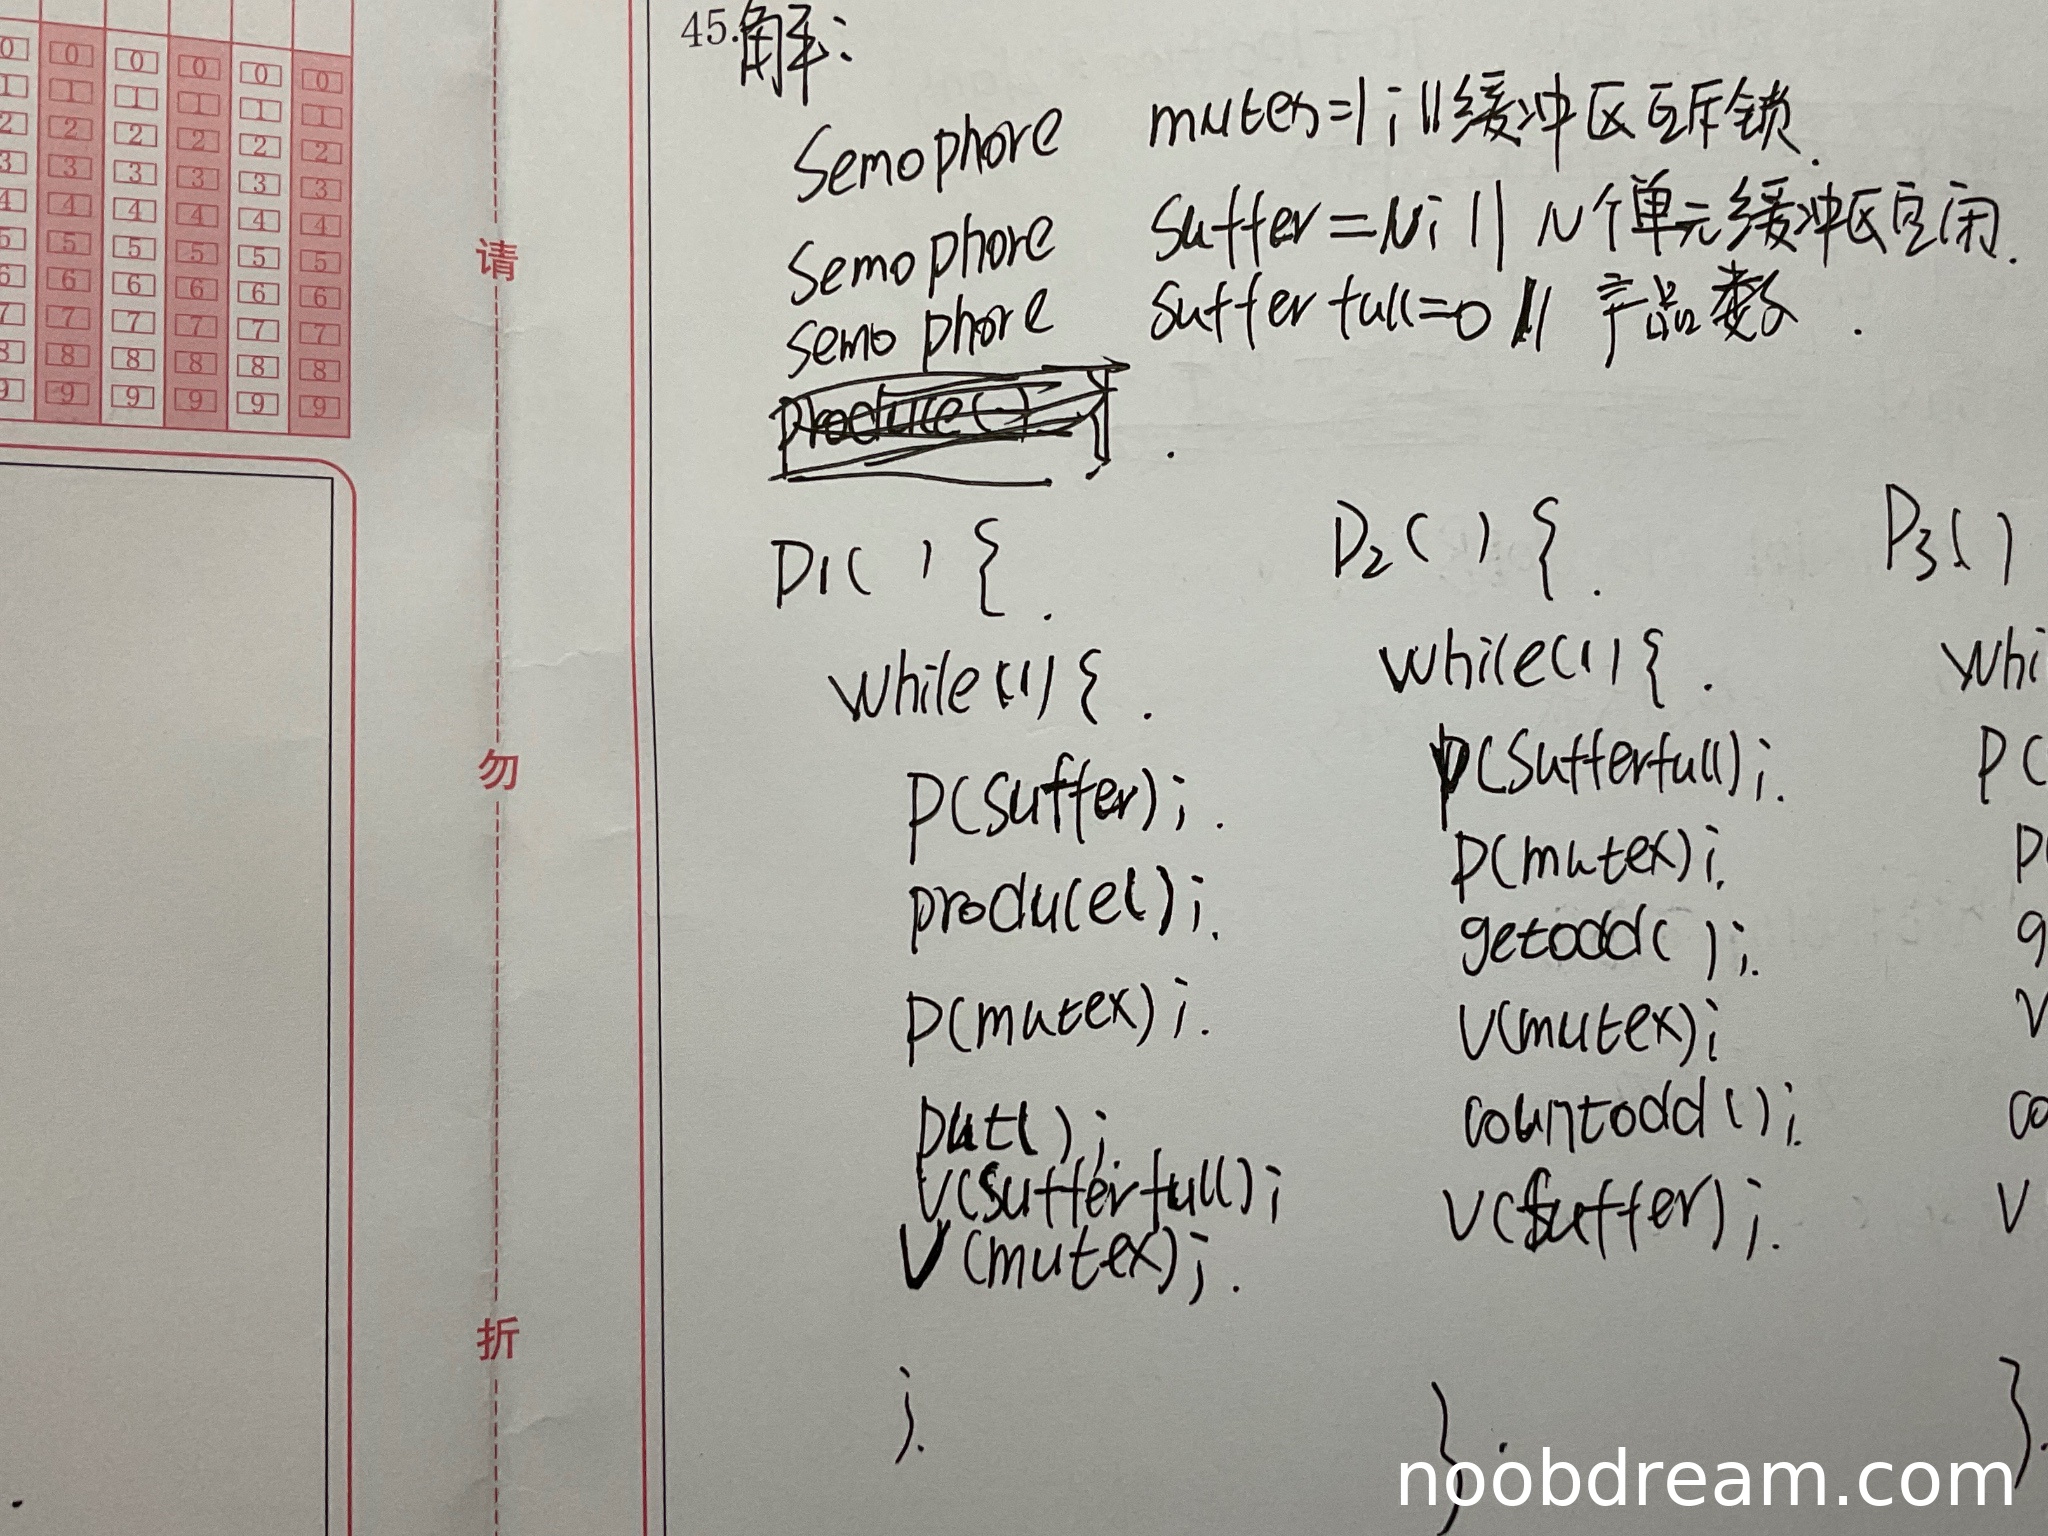 45.解:
Semophore mutex=1; //缓冲区互斥锁.
Semophore Suffer=N; // N个单元缓冲区空闲.
semophore Sufferfull=0 // 产品数.
P1( ) {.
while(1) {.
P(Suffer);.
produce();.
P(mutex);.
put();.
V(Sufferfull);
V(mutex);.
}.
P2( ) {.
while(1) {.
P(Sufferfull);.
P(mutex);.
getodd( );.
V(mutex);
countodd();.
V(Suffer);.
}.
P3( )
whi
P(
P(
g
V
co
V
}.
0 0 0 0 0 0
1 1 1 1 1 1
2 2 2 2 2 2
3 3 3 3 3 3
4 4 4 4 4 4
5 5 5 5 5 5
6 6 6 6 6 6
7 7 7 7 7 7
8 8 8 8 8 8
9 9 9 9 9 9
请
勿
折
noobdream.com